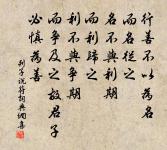 行善不以為名
而名從之
名不與利期
而利歸之
利不與爭期
而爭及之故君子
必慎為善
列子說符詞典網書